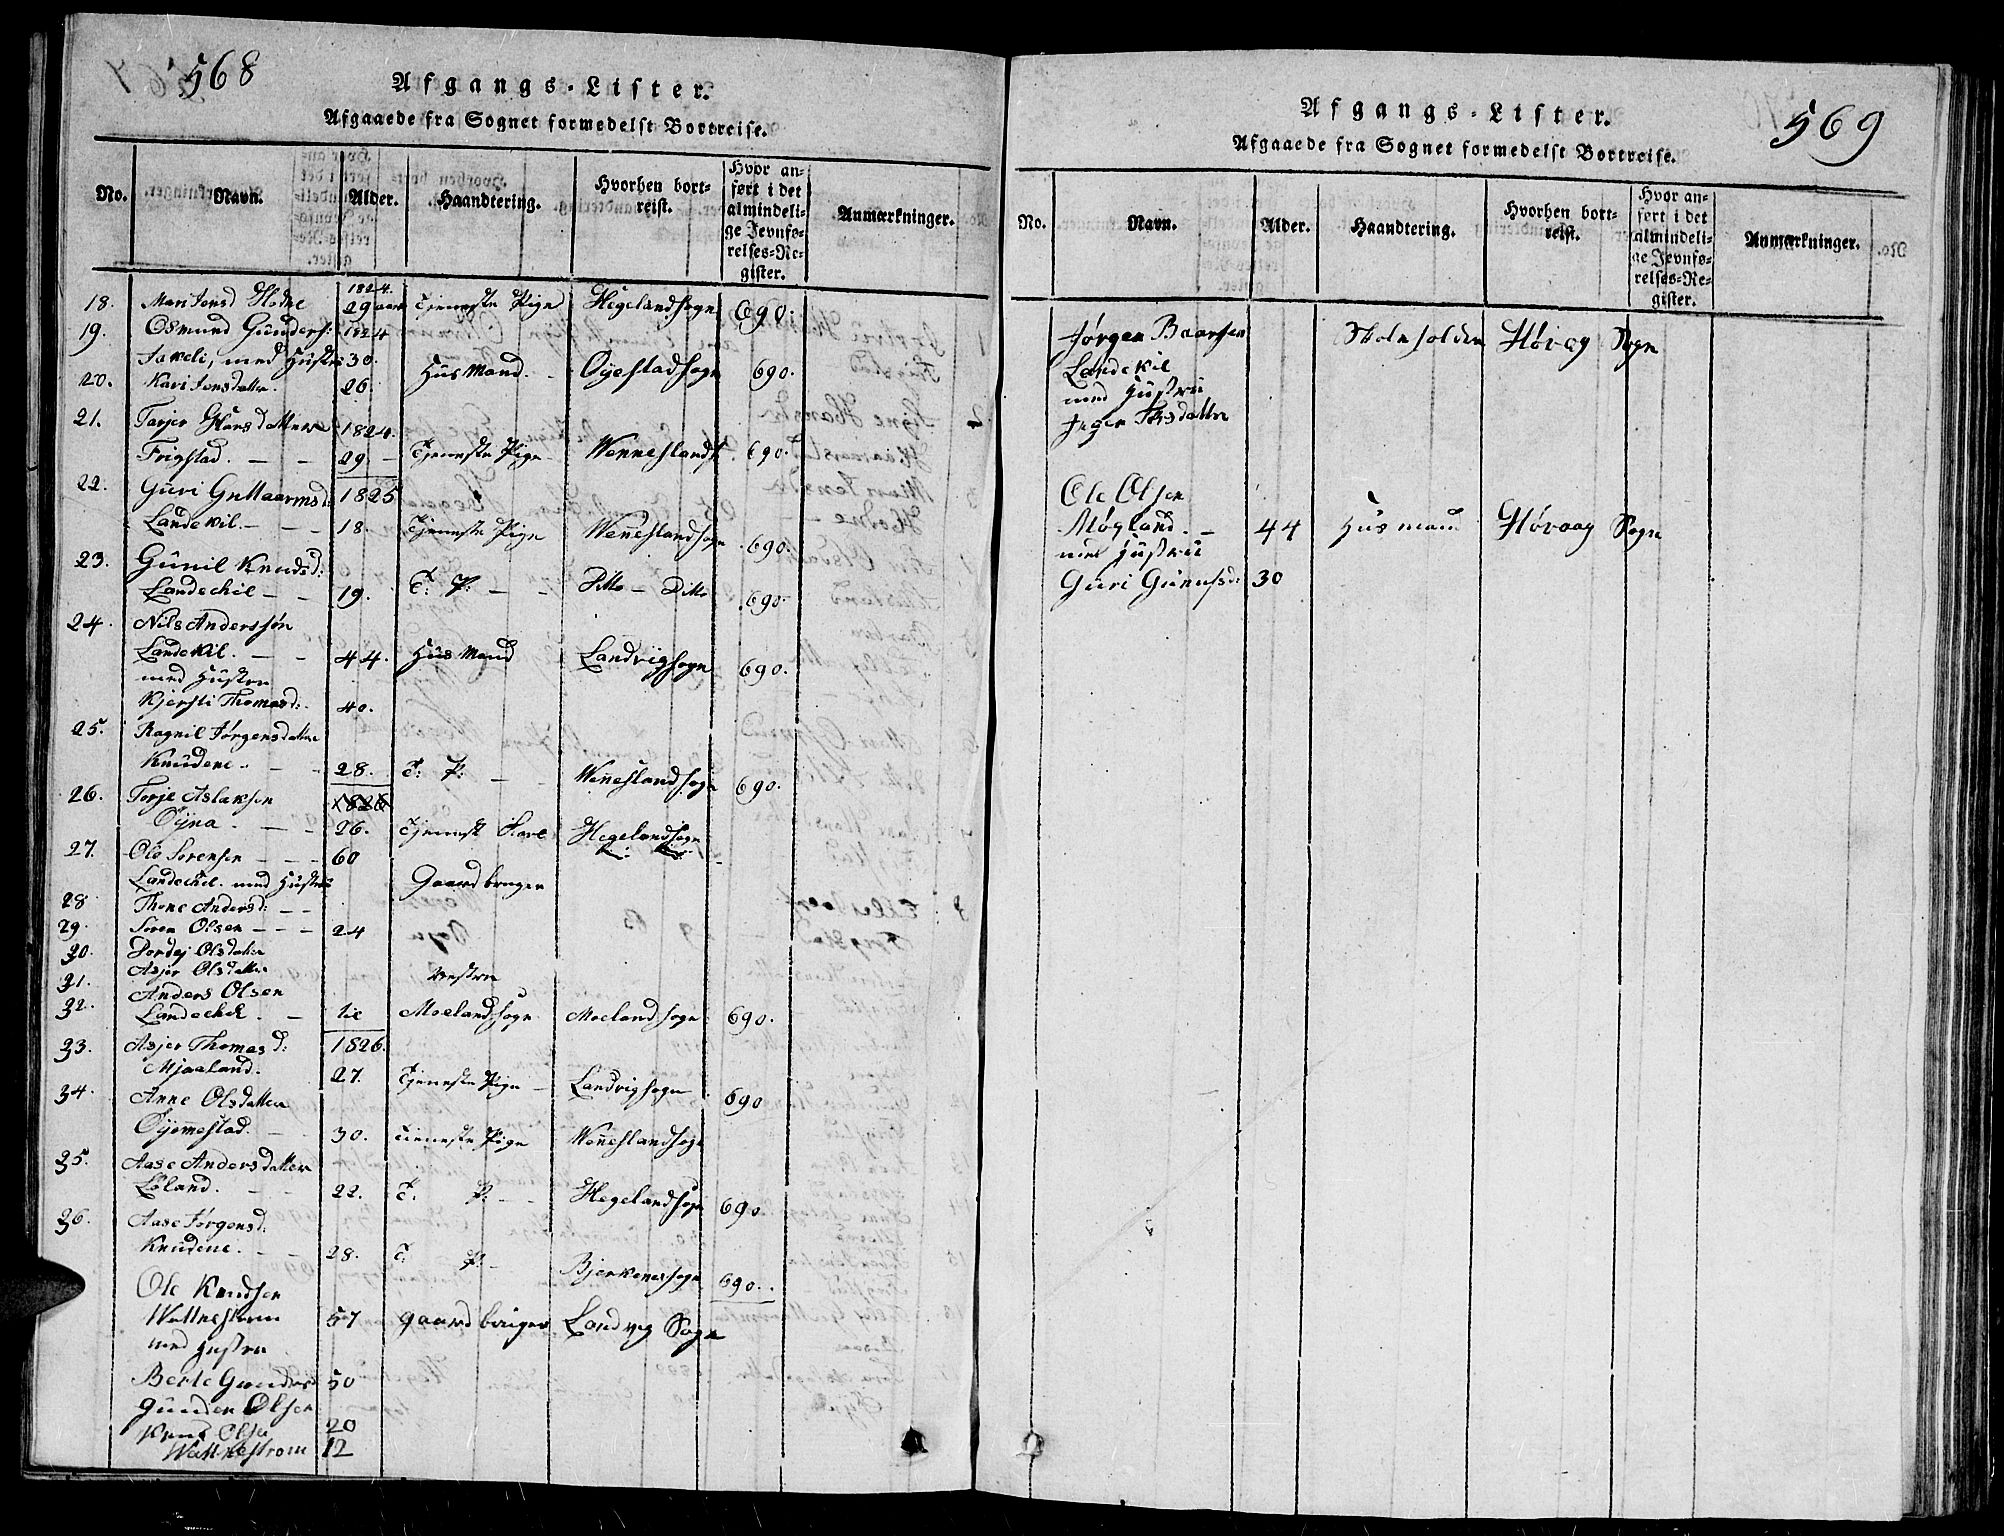 568
Afgangs-Lister.
Afgaaede fra Sognet formedelst Bortreise.
No. Navn. Alder. Haandtering. Hvorhen bortreist. Hvor anført i det almindelige Jevnførelses-Register. Anmærkninger.
1824.
18. Mari Jonsd Hodne 29 aar Tjeneste Pige Hegelandsogn 690.
19. Osmund Gunders: 1824
med Hustru 30. Huus Mand Oyestadsogn 690.
20. Kari Jonsdatter. 26.
21. Tarjer Hansdatter 1824.
Frigstad. 29 Tjeneste Pige Wenneslands 690.
22. Guri Guttaarmsd: 1825
Landekil. 18. Tjeneste Pige Weneslandsogn 690.
23. Gunil Knudsd:
Landechil 19. T: P: Ditto - Ditto 690.
24. Nils Anderssøn
Landekil. 44. Huus Mand Landvigsogn 690.
med Hustru
Kjersti Thomasd: 40.
25. Ragnil Jørgensdatter
Knudene. 28. T: P: Weneslandsogn 690.
26. Torje Aslaksen 1826
Öyna. 26. Tjeneste Karl Hegelandsogn
27. Ole Sørensen 60
Landechil. med Hustru Gaardbruger
28 Thone Andersd:
29. Søren Olsen 24
30. Dordej Olsdatter
31. Asjer Olsdatter Vestre
32. Anders Olsen
Landechil. Moelandsogn Moelandsogn 690.
33. Asjer Thomasd: 1826.
Mjaaland. 27. Tjeneste Pige Landvigsogn 690
34. Anne Olsdatter
Öyomestad. 30. Tieneste Pige Weneslandsogn
35. Aase Andersdatter
Löland. 22. T. P. Hegelandsogn 690.
36. Aase Jørgensd:
Knudene. 28. T. P. Bjerkenessogn 690.
Ole Knudsen
Wattnestrøm 57 gaardbruger Landvig Sogn
med Hustru
Berte Gundersd 50
Gunder Olsen
Knud Olsen 20
Wattnestrøm 12
569
Afgangs-Lister.
Afgaaede fra Sognet formedelst Bortreise.
No. Navn. Alder. Haandtering. Hvorhen bortreist. Hvor anført i det almindelige Jevnførelses-Register. Anmærkninger.
Jørgen Baarsen Skoleholder Høvag Sogn
Landekil
med Hustru
Ole Olsen
Møgland 44 Husmand Høvaag Sogn
med Hustru
Guri Gunufsd: 30